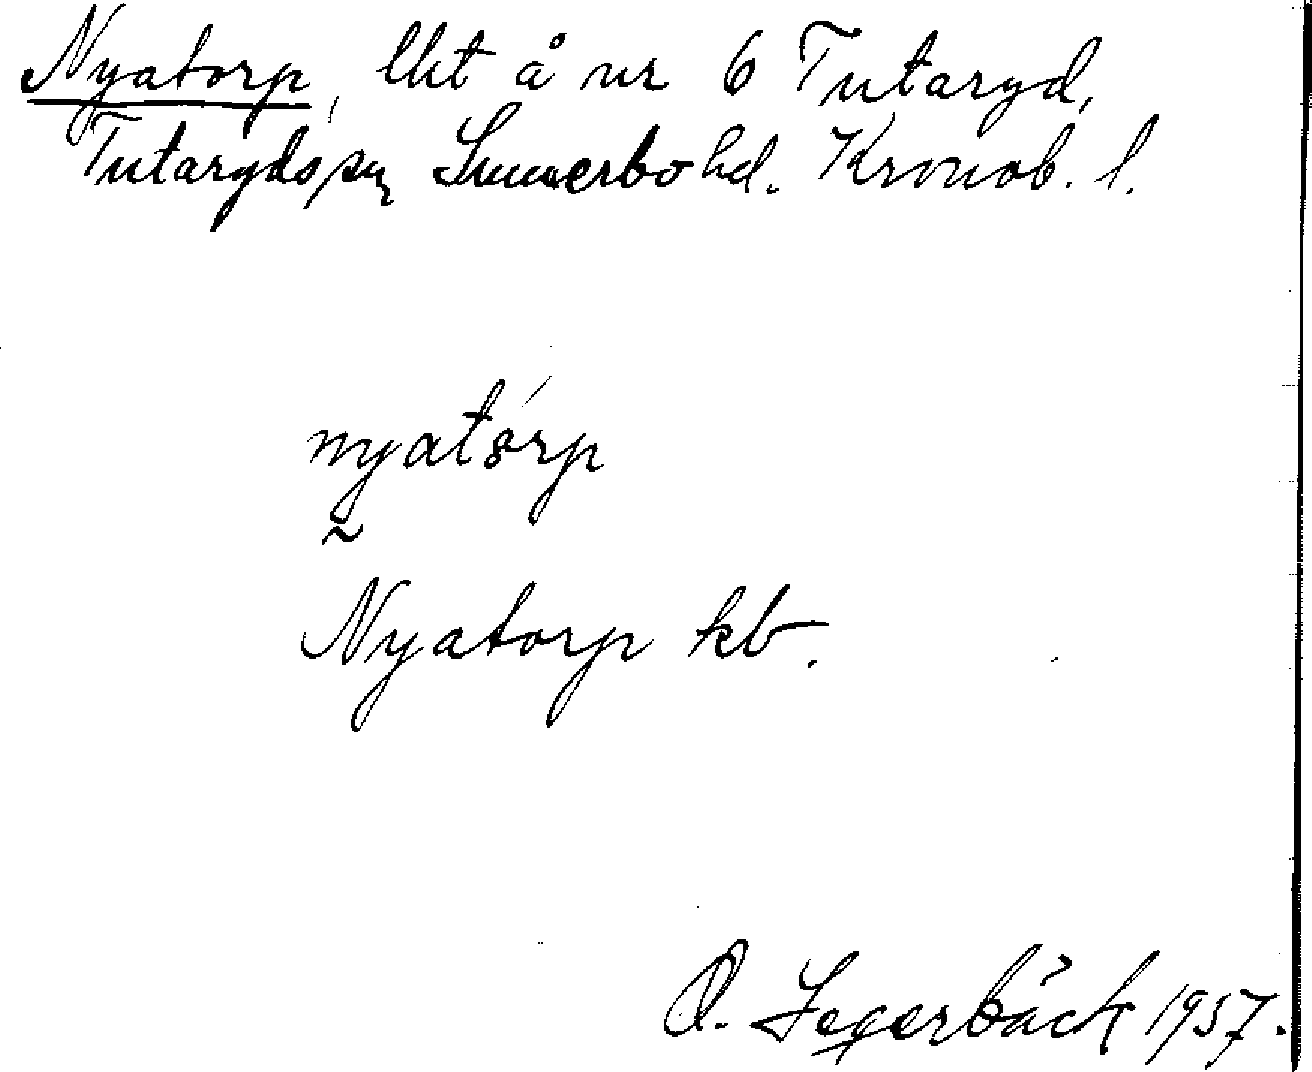 Nyatorp, lht å nr 6 Tutaryd,
Tutaryds sn Sunnerbo hd. Kronob. l.
nyatórp
~
Nyatorp kb.
O. Segerbäck 1957.